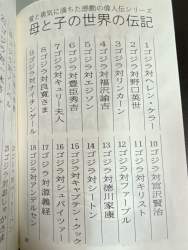 愛と勇気に満ちた感動の偉人伝シリーズ
母と子の世界の伝記
1 ゴジラ対ヘレン・ケラー
2 ゴジラ対野口英世
3 ゴジラ対リンカーン
4 ゴジラ対福沢諭吉
5 ゴジラ対エジソン
6 ゴジラ対豊臣秀吉
7 ゴジラ対キュリー夫人
8 ゴジラ対良寛さま
9 ゴジラ対ナイチンゲール
10 ゴジラ対宮沢賢治
11 ゴジラ対キリスト
12 ゴジラ対ファーブル
13 ゴジラ対徳川家康
14 ゴジラ対シートン
15 ゴジラ対キャプテン・クック
16 ゴジラ対シュバイツァー
17 ゴジラ対源義経
18 ゴジラ対アンデルセン